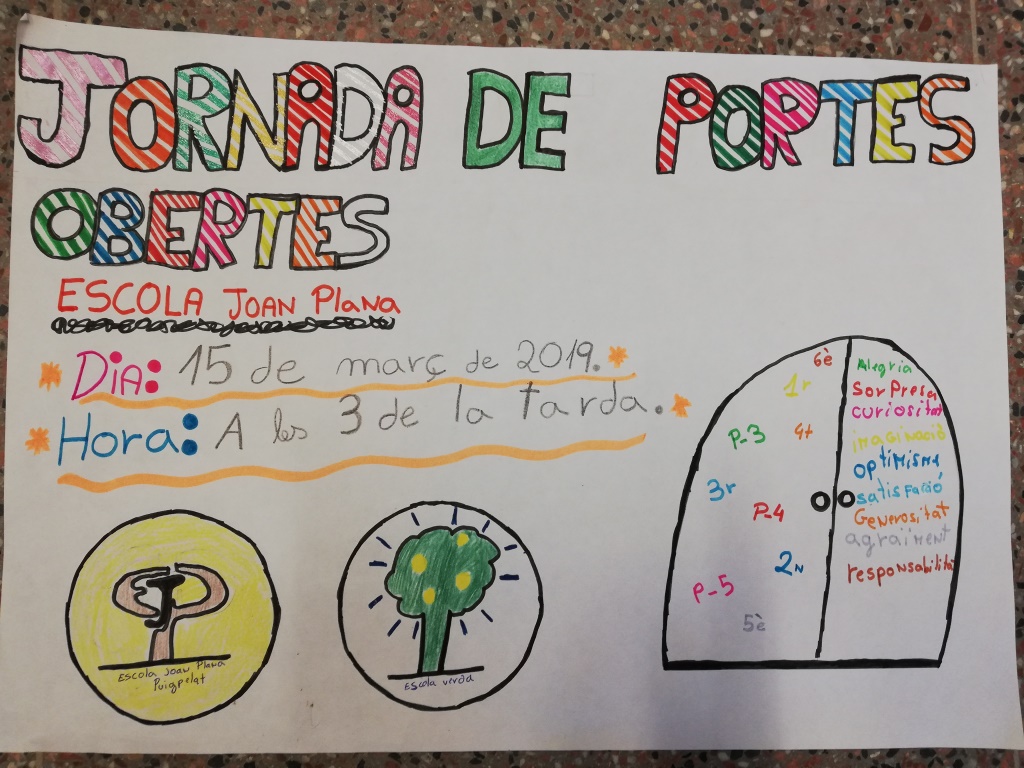 JORNADA DE PORTES
OBERTES
ESCOLA JOAN PlANA
DIA: 15 de març de 2019.
Hora: A les 3 de la tarda.
6è
1r
P-3
4t
3r
P-4
2n
P-5
5è
Alegria
SorPresa
curiositat
imaginació
optimisme
satisfació
Generositat
agraïment
responsabilitat
Escola Joan Plana
Puigpelat
Escola verda